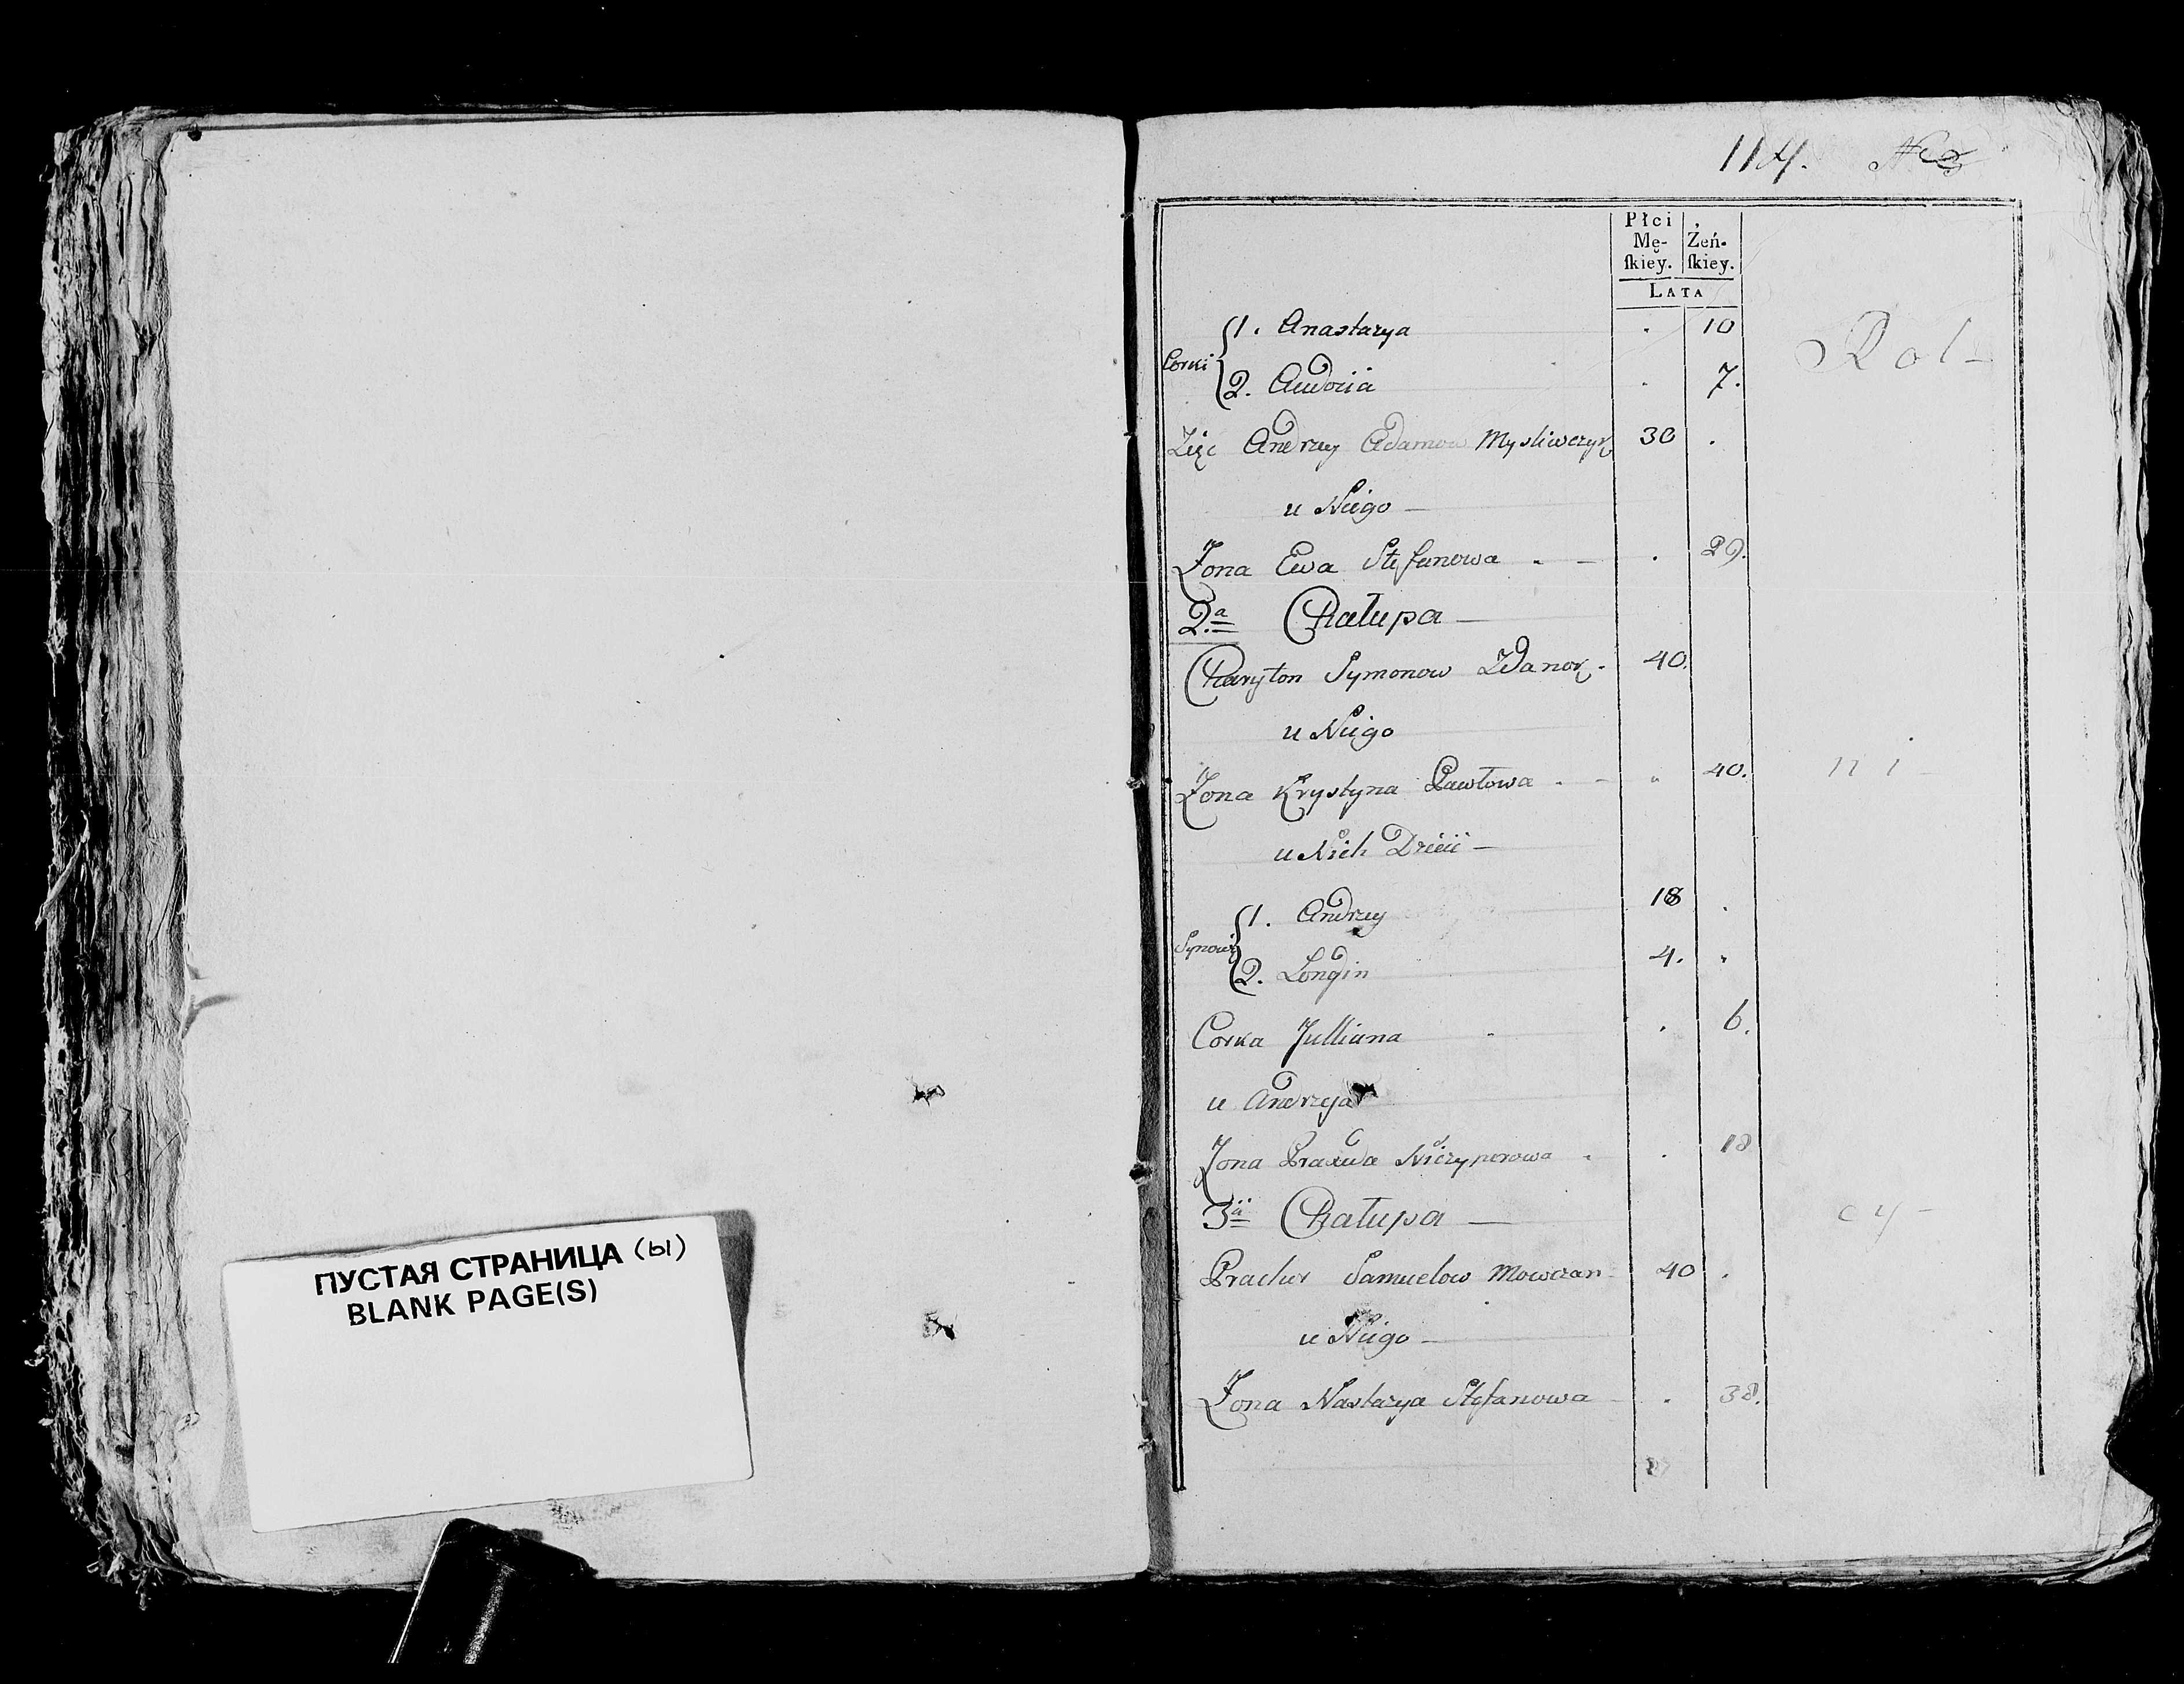 ПУСТАЯ СТРАНИЦА (Ы)
BLANK PAGE(S)
114.
Płci
Mę-
ſkiey.
Żeń-
ſkiey.
LATA
Corki
1. Anastazya . 10
2. Audocia . 7.
Rol-
Zięc Andrzey Adamow 30 .
u Niego —
Żona Ewa Stefanowa . 29.
2.a Chałupa —
Charyton Symonow 40.
u Niego
Żona Krystyna Pawłowa . 40.
ni-
u Nich Dzieci —
Synowie
1. Andrzey 18 .
2. Longin 4. .
Corka Julliana . 6.
u Andrzeja
Żona Niczyporowa . 18
3.a Chałupa —
cy-
Samuelow Mowczan 40 .
u Niego —
Żona Nastazya Stefanowa . 38.